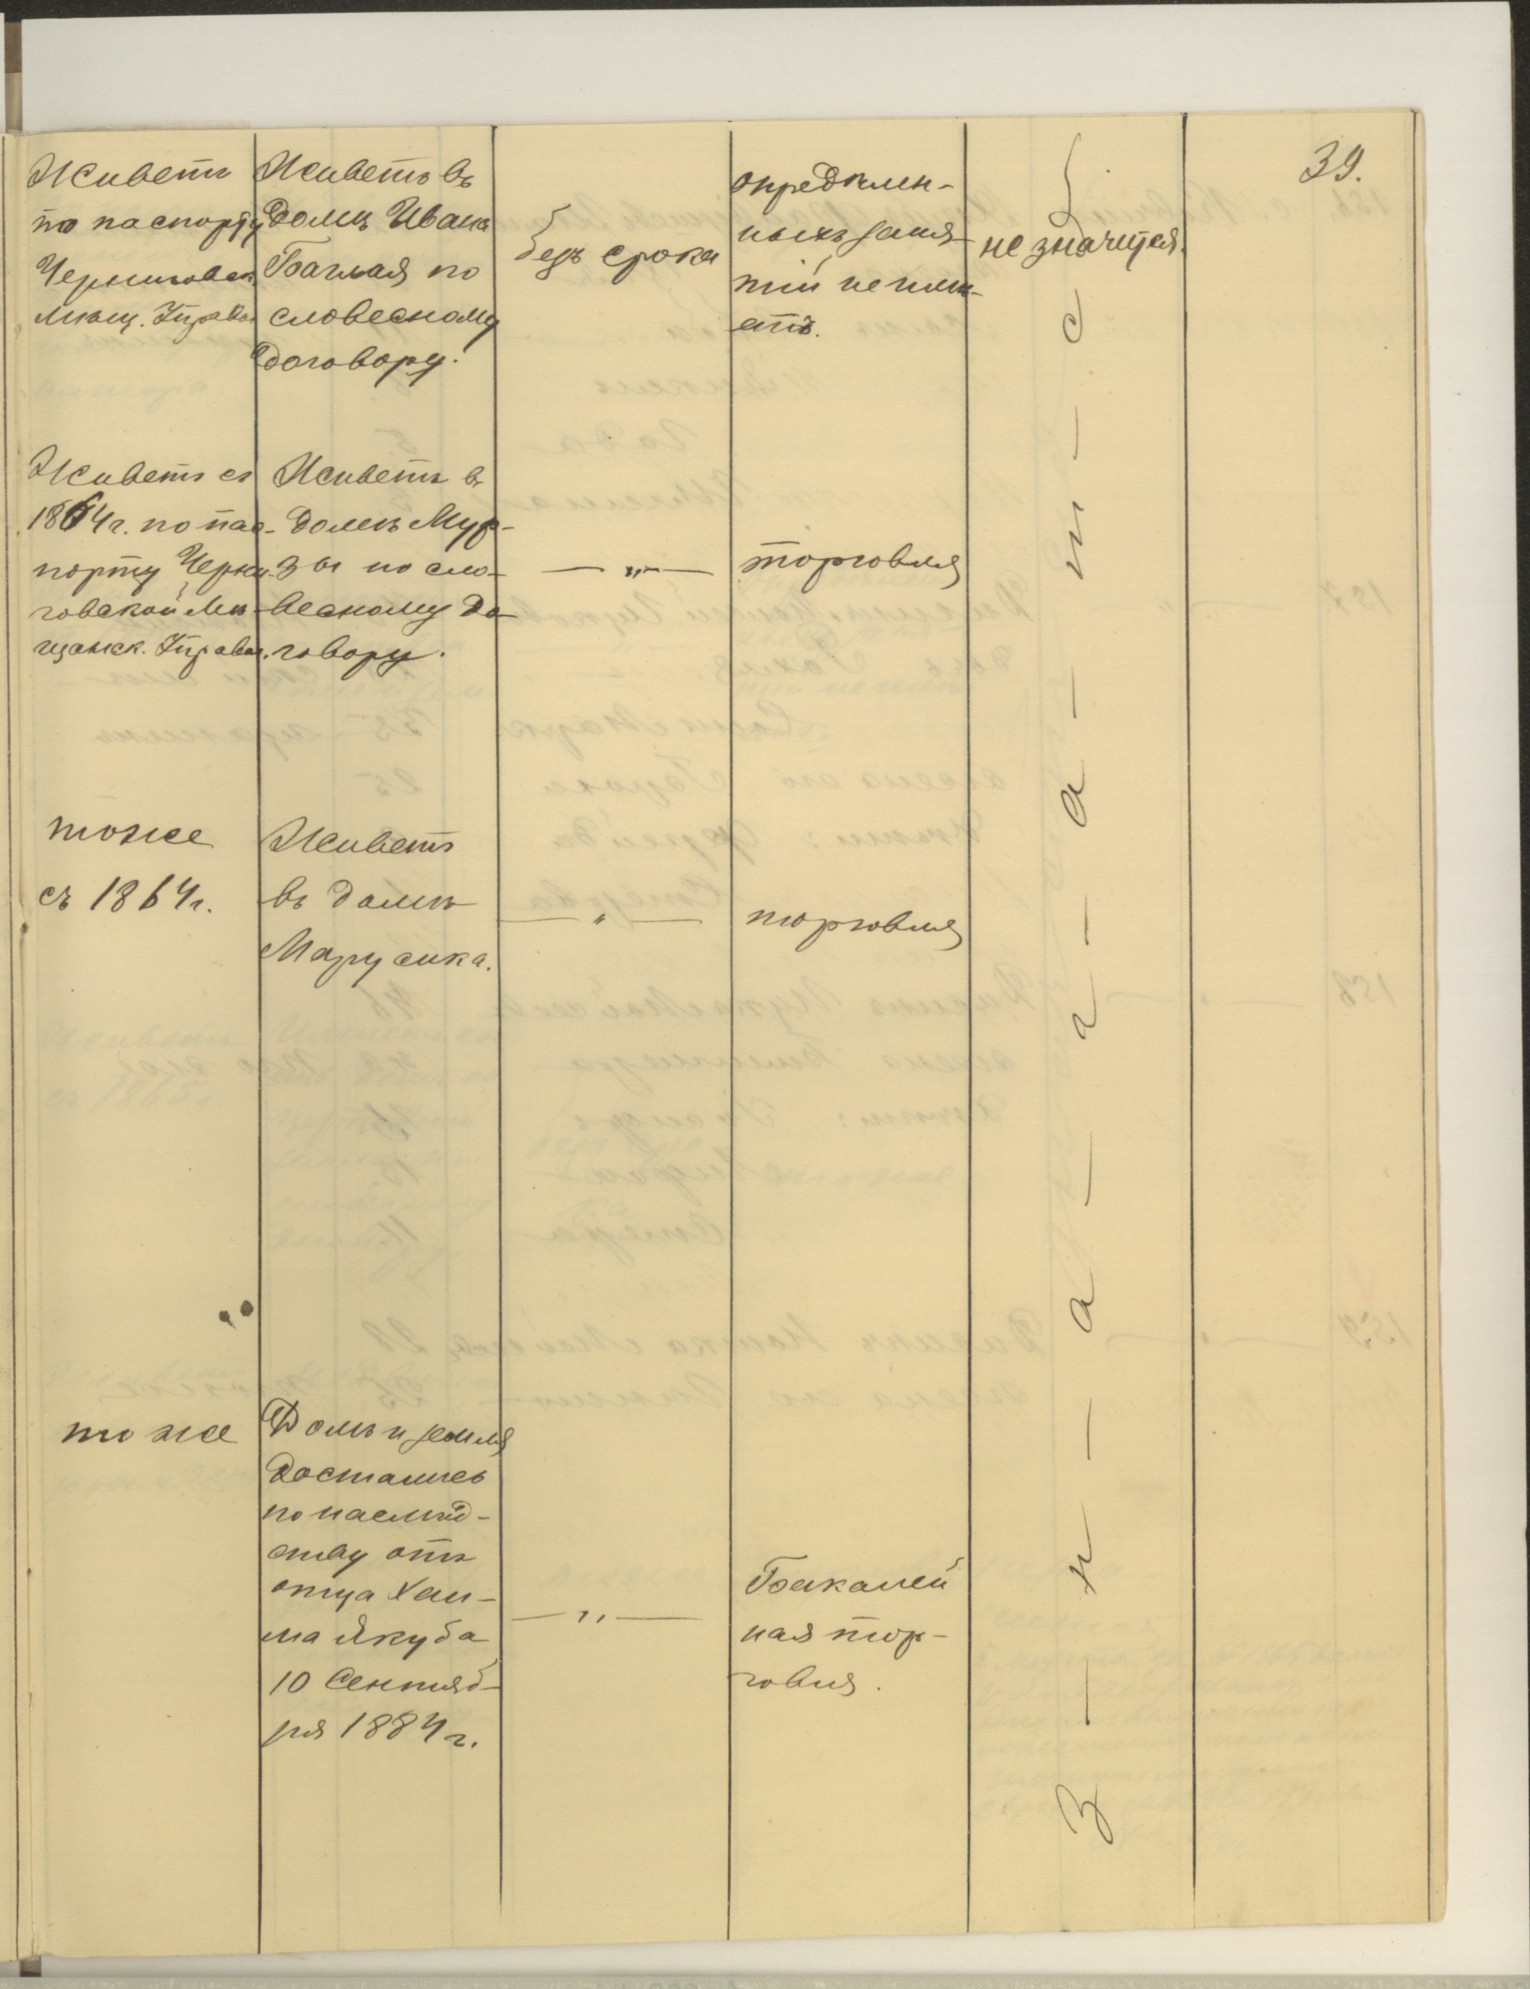 39.
Живетъ
по паспорту
Черниговск.
Мѣщ. Управы
Живетъ въ
домѣ Ивана
Баглая по
словесному
договору.
безъ срока
опредѣлен-
ныхъ заня-
тій не имѣ-
етъ.
не значится.
Живетъ съ
1864 г. по пас-
порту Черни-
говской Мѣ-
щанск. Управы.
Живетъ въ
домѣ Мур-
зы по сло-
весному до-
говору.
— „ —
торговля
тоже
съ 1864 г.
Живетъ
въ домѣ
Марусика.
— „ —
торговля
тоже
Домъ и земля
достались
по наслѣд-
ству отъ
отца Хаи-
ма Якуба
10 Сентяб-
ря 1884 г.
— „ —
Бакалей
ная тор-
говля.